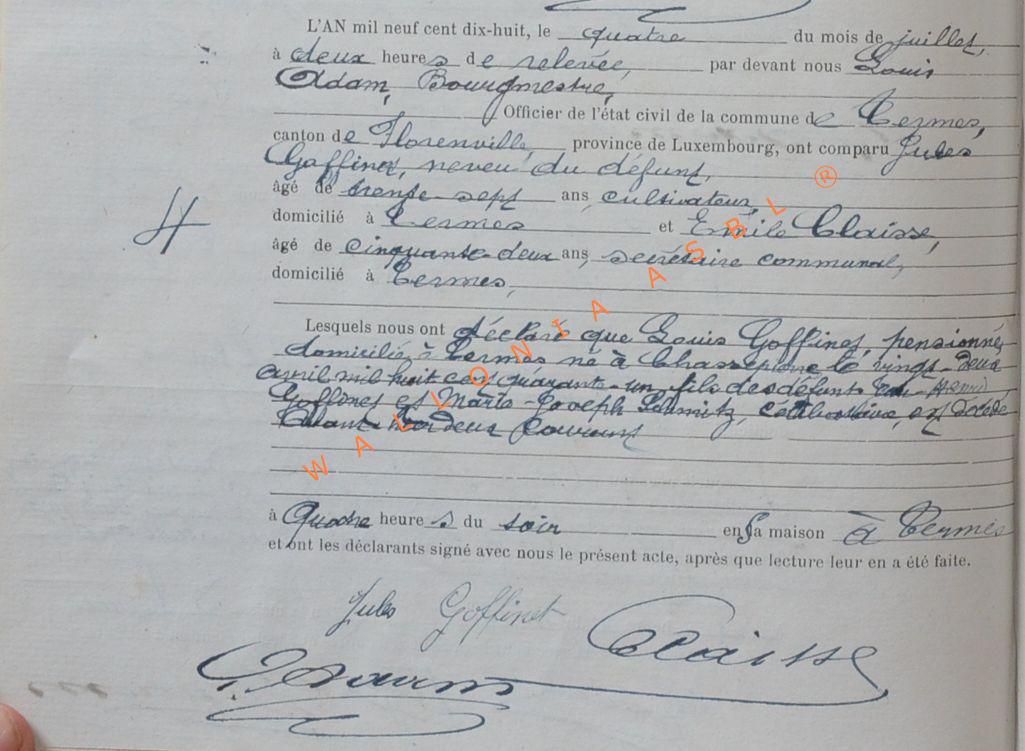 L'AN mil neuf cent dix-huit, le quatre du mois de juillet,
à deux heures de relevée, par devant nous Louis
Adam, Bourgmestre,
Officier de l'état civil de la commune de Termes,
canton de Florenville, province de Luxembourg, ont comparu Jules
Goffinet, neveu du défunt,
âgé de trente-sept ans, cultivateur,
domicilié à Termes et Emile Claisse,
4
âgé de cinquante-deux ans, secrétaire communal,
domicilié à Termes,
Lesquels nous ont déclaré que Louis Goffinet, pensionné,
domicilié à Termes né à Chassepierre le vingt-deux
avril mil huit cent quarante-un, fils des défunts Henri
Goffinet et Joseph Schmitz, célibataire, est décédé
courant
à quatre heures du soir en sa maison à Termes
et ont les déclarants signé avec nous le présent acte, après que lecture leur en a été faite.
Jules Goffinet Claisse
L. Adam
WALLONIA ASBL ®